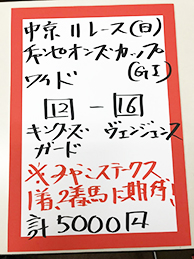 中京11レース(日)
チャンピオンズカップ
ワイド (GI)
12 — 16
キングズ ヴェンジェンス
ガード
※みやこステークス
1着、2着馬に期待!
計5000円